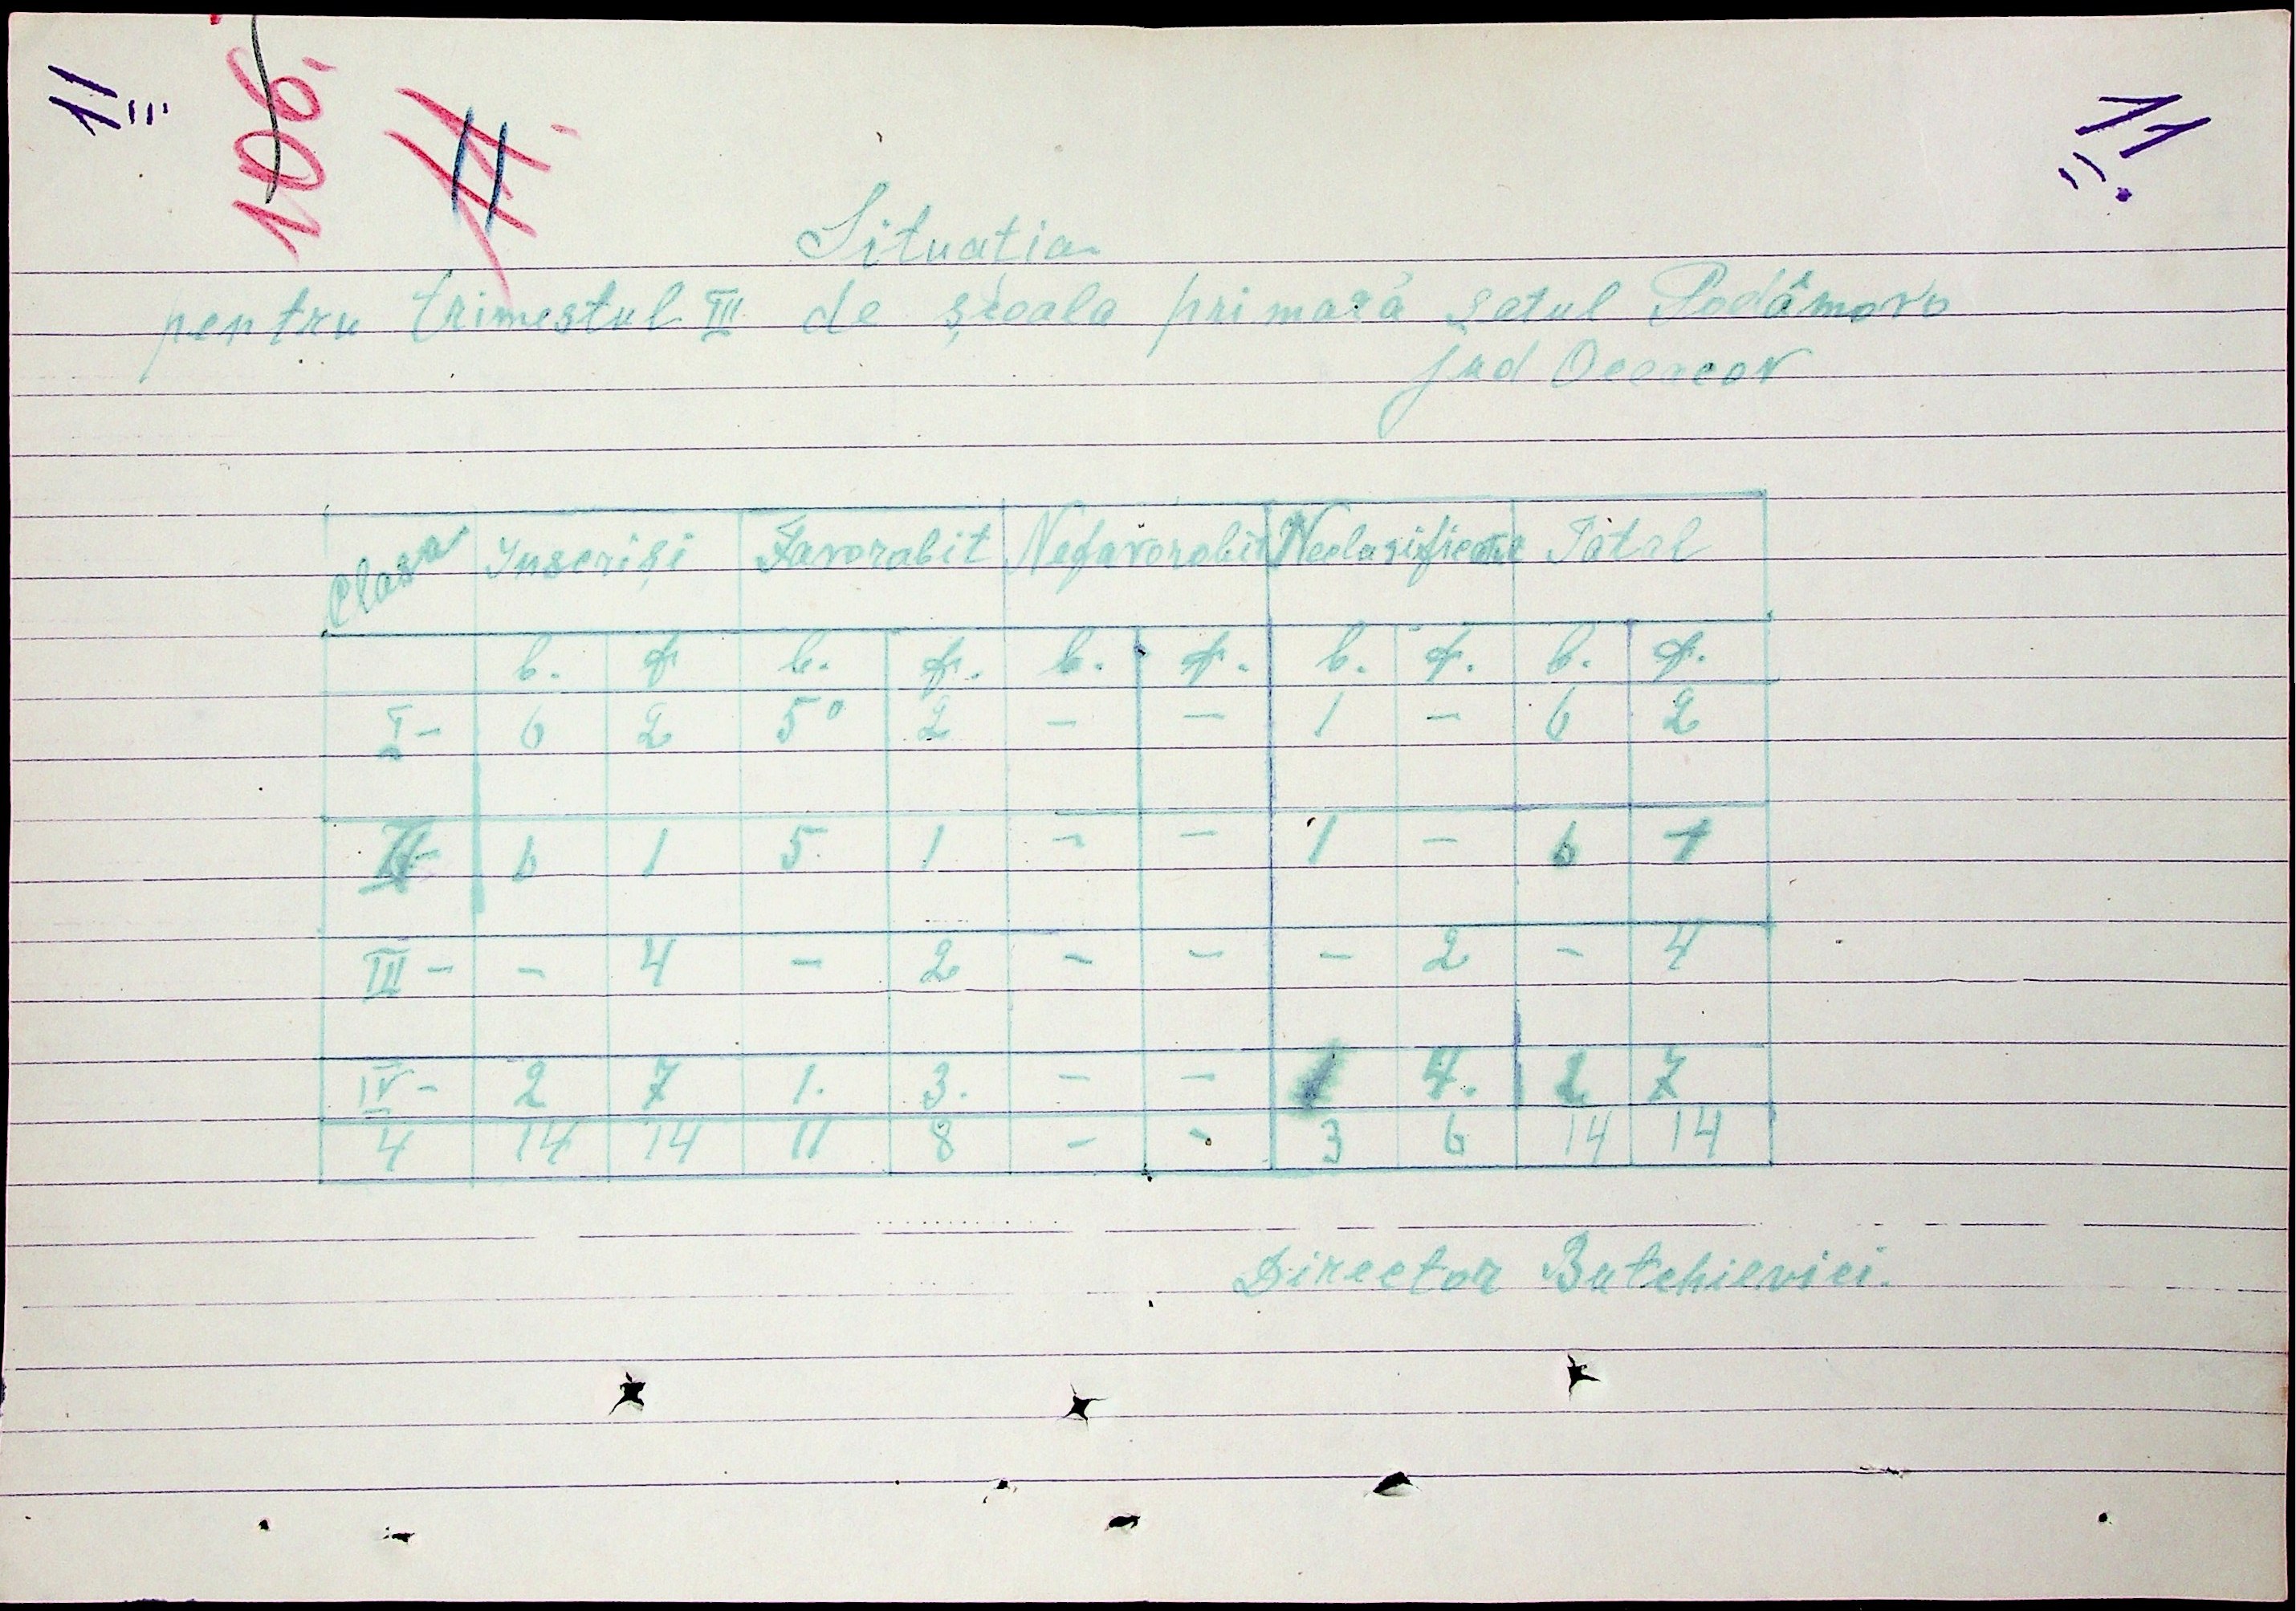 11
106.
11.
11
Situatia
pentru trimestul III de școala primară satul Podâmovo
jud Oceacov
Clasa Inscriși Favorabit Nefavorabit Neclasificate Total
b. f b. f. b. f. b. f. b. f.
I- 6 2 5 2 - - 1 - 6 2
II- 6 1 5 1 - - 1 - 6 1
III- - 4 - 2 - - - 2 - 4
IV- 2 7 1. 3. - - 1 4. 2 7
4 14 14 11 8 - - 3 6 14 14
Director Butchievici.